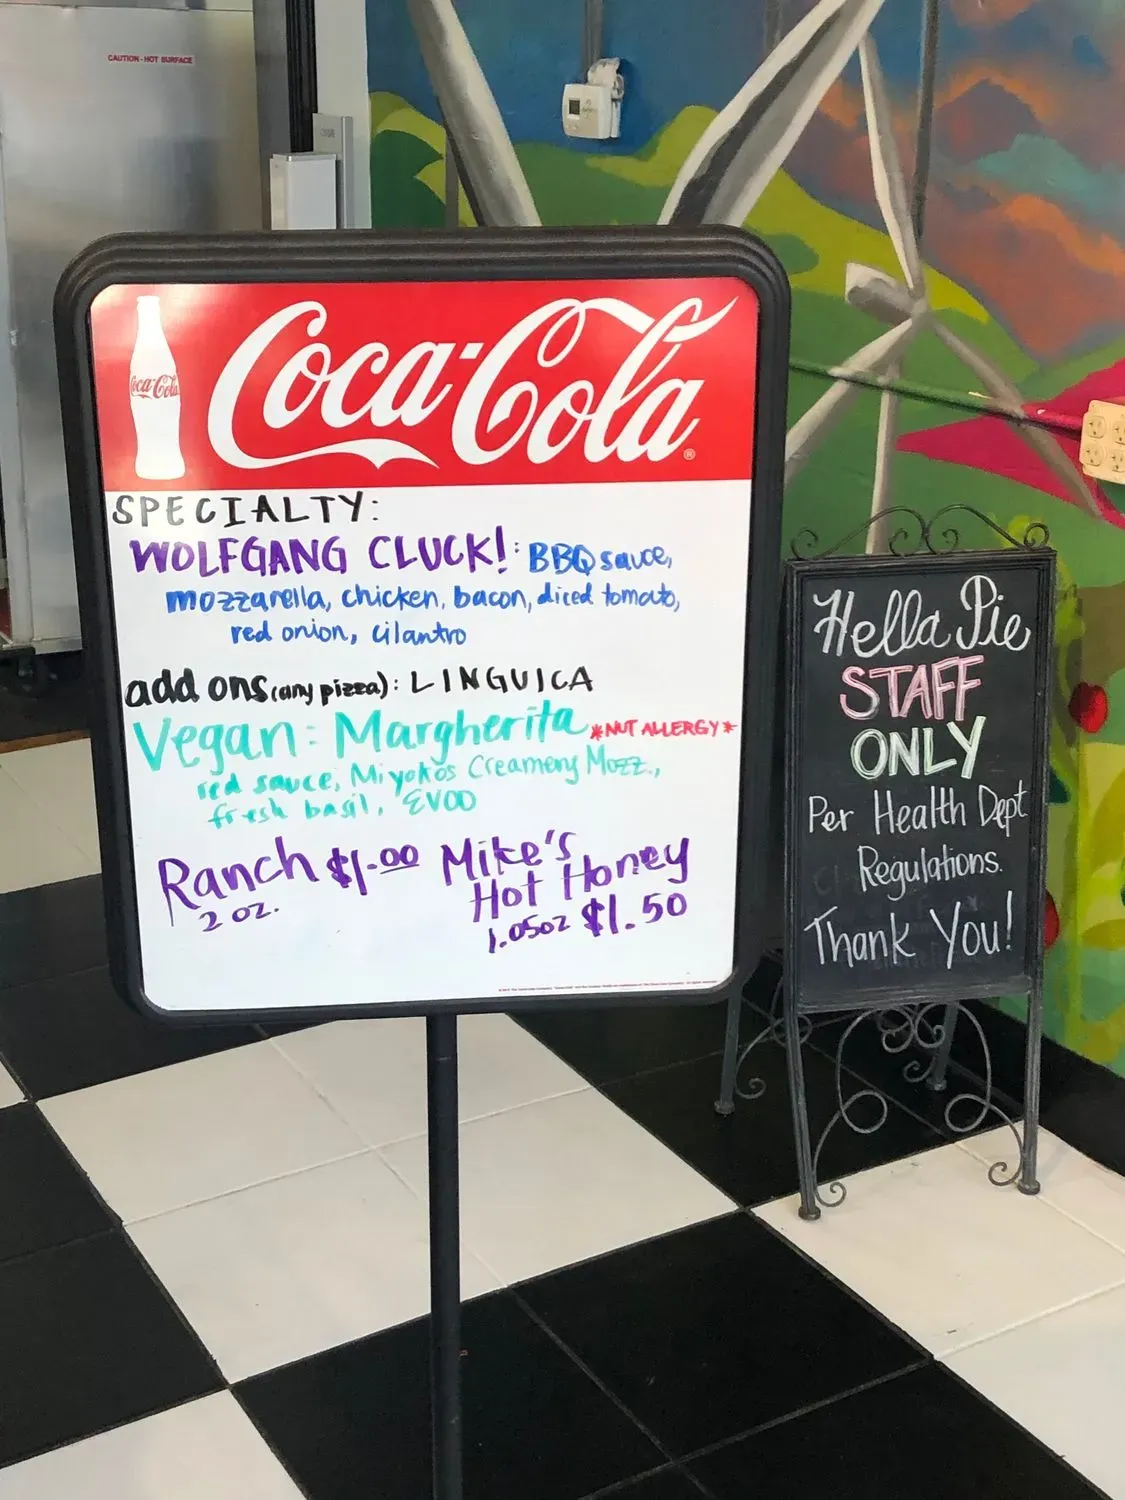 CAUTION - HOT SURFACE
Coca-Cola
Coca-Cola®
SPECIALTY:
WOLFGANG CLUCK!: BBQ sauce,
mozzarella, chicken, bacon, diced tomato,
red onion, cilantro
add ons (any pizza): LINGUICA
Vegan: Margherita *NUT ALLERGY*
red sauce, Miyoko's Creamery Mozz.,
fresh basil, EVOO
Ranch $1.00
2 oz.
Mike's
Hot Honey
1.05oz $1.50
Hella Pie
STAFF
ONLY
Per Health Dept
Regulations.
Thank You!